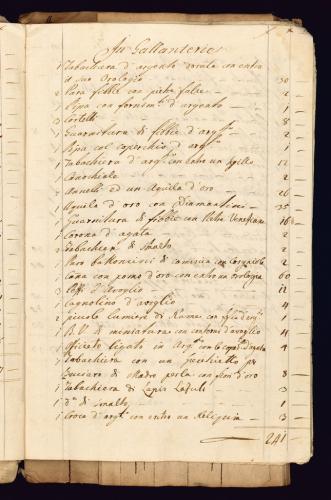 In Gallanterie
1 Tabachiera d'argento dorata con entro
il suo Orologio 30
2 Para fibbie con pietre false 2
1 Pipa con fornim.ti d'argento 1
3 Cortelli 8
1 Guarnitura di fibbie d'arg.to 2
1 Pipa col coperchio d'arg.to 1
1 Tabachiera d'arg.to con 12
1 Canochiale 2
Annelli ed un Aquila d'oro 26
1 Aquila d'oro con Diamantini 35
1 Guarnitura di fibbie con
1 Corona d'agata 2
2 Tabachiera di Smalto 2
1 Paro bottoncini di camicia con Corgniole 2
1 Cana con pomo d'oro con entro un orologio 60
3 d'Avoglio 12
1 Cagnolino d'avoglio 4
2 picoli lumieri di Rame con 1
1 B.V. di miniatura con contorni d'avoglio 4
1 Officio ligato in Arg.to con 4
1 Tabachiera con un
1 di Madre perla con d'oro 8
1 Tabachiera di Lapis Lazuli 3
1 d.a di Smalto 1
1 Croce d'arg.to con entro un Reliquia 3
241